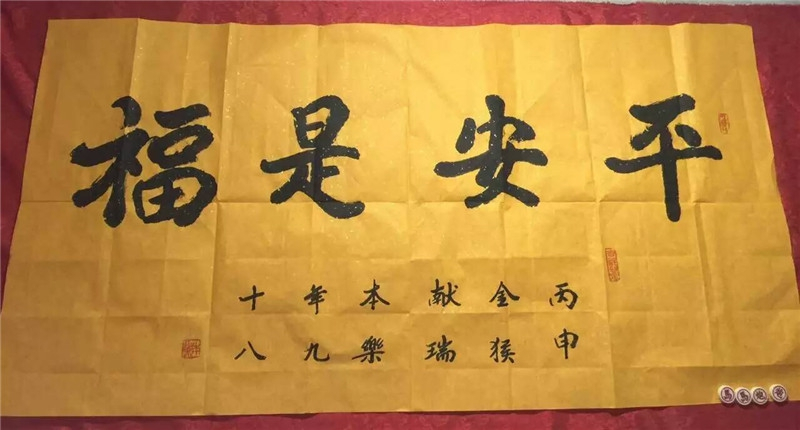 平安是福
丙申
金猴
献瑞
本樂
年九
十八